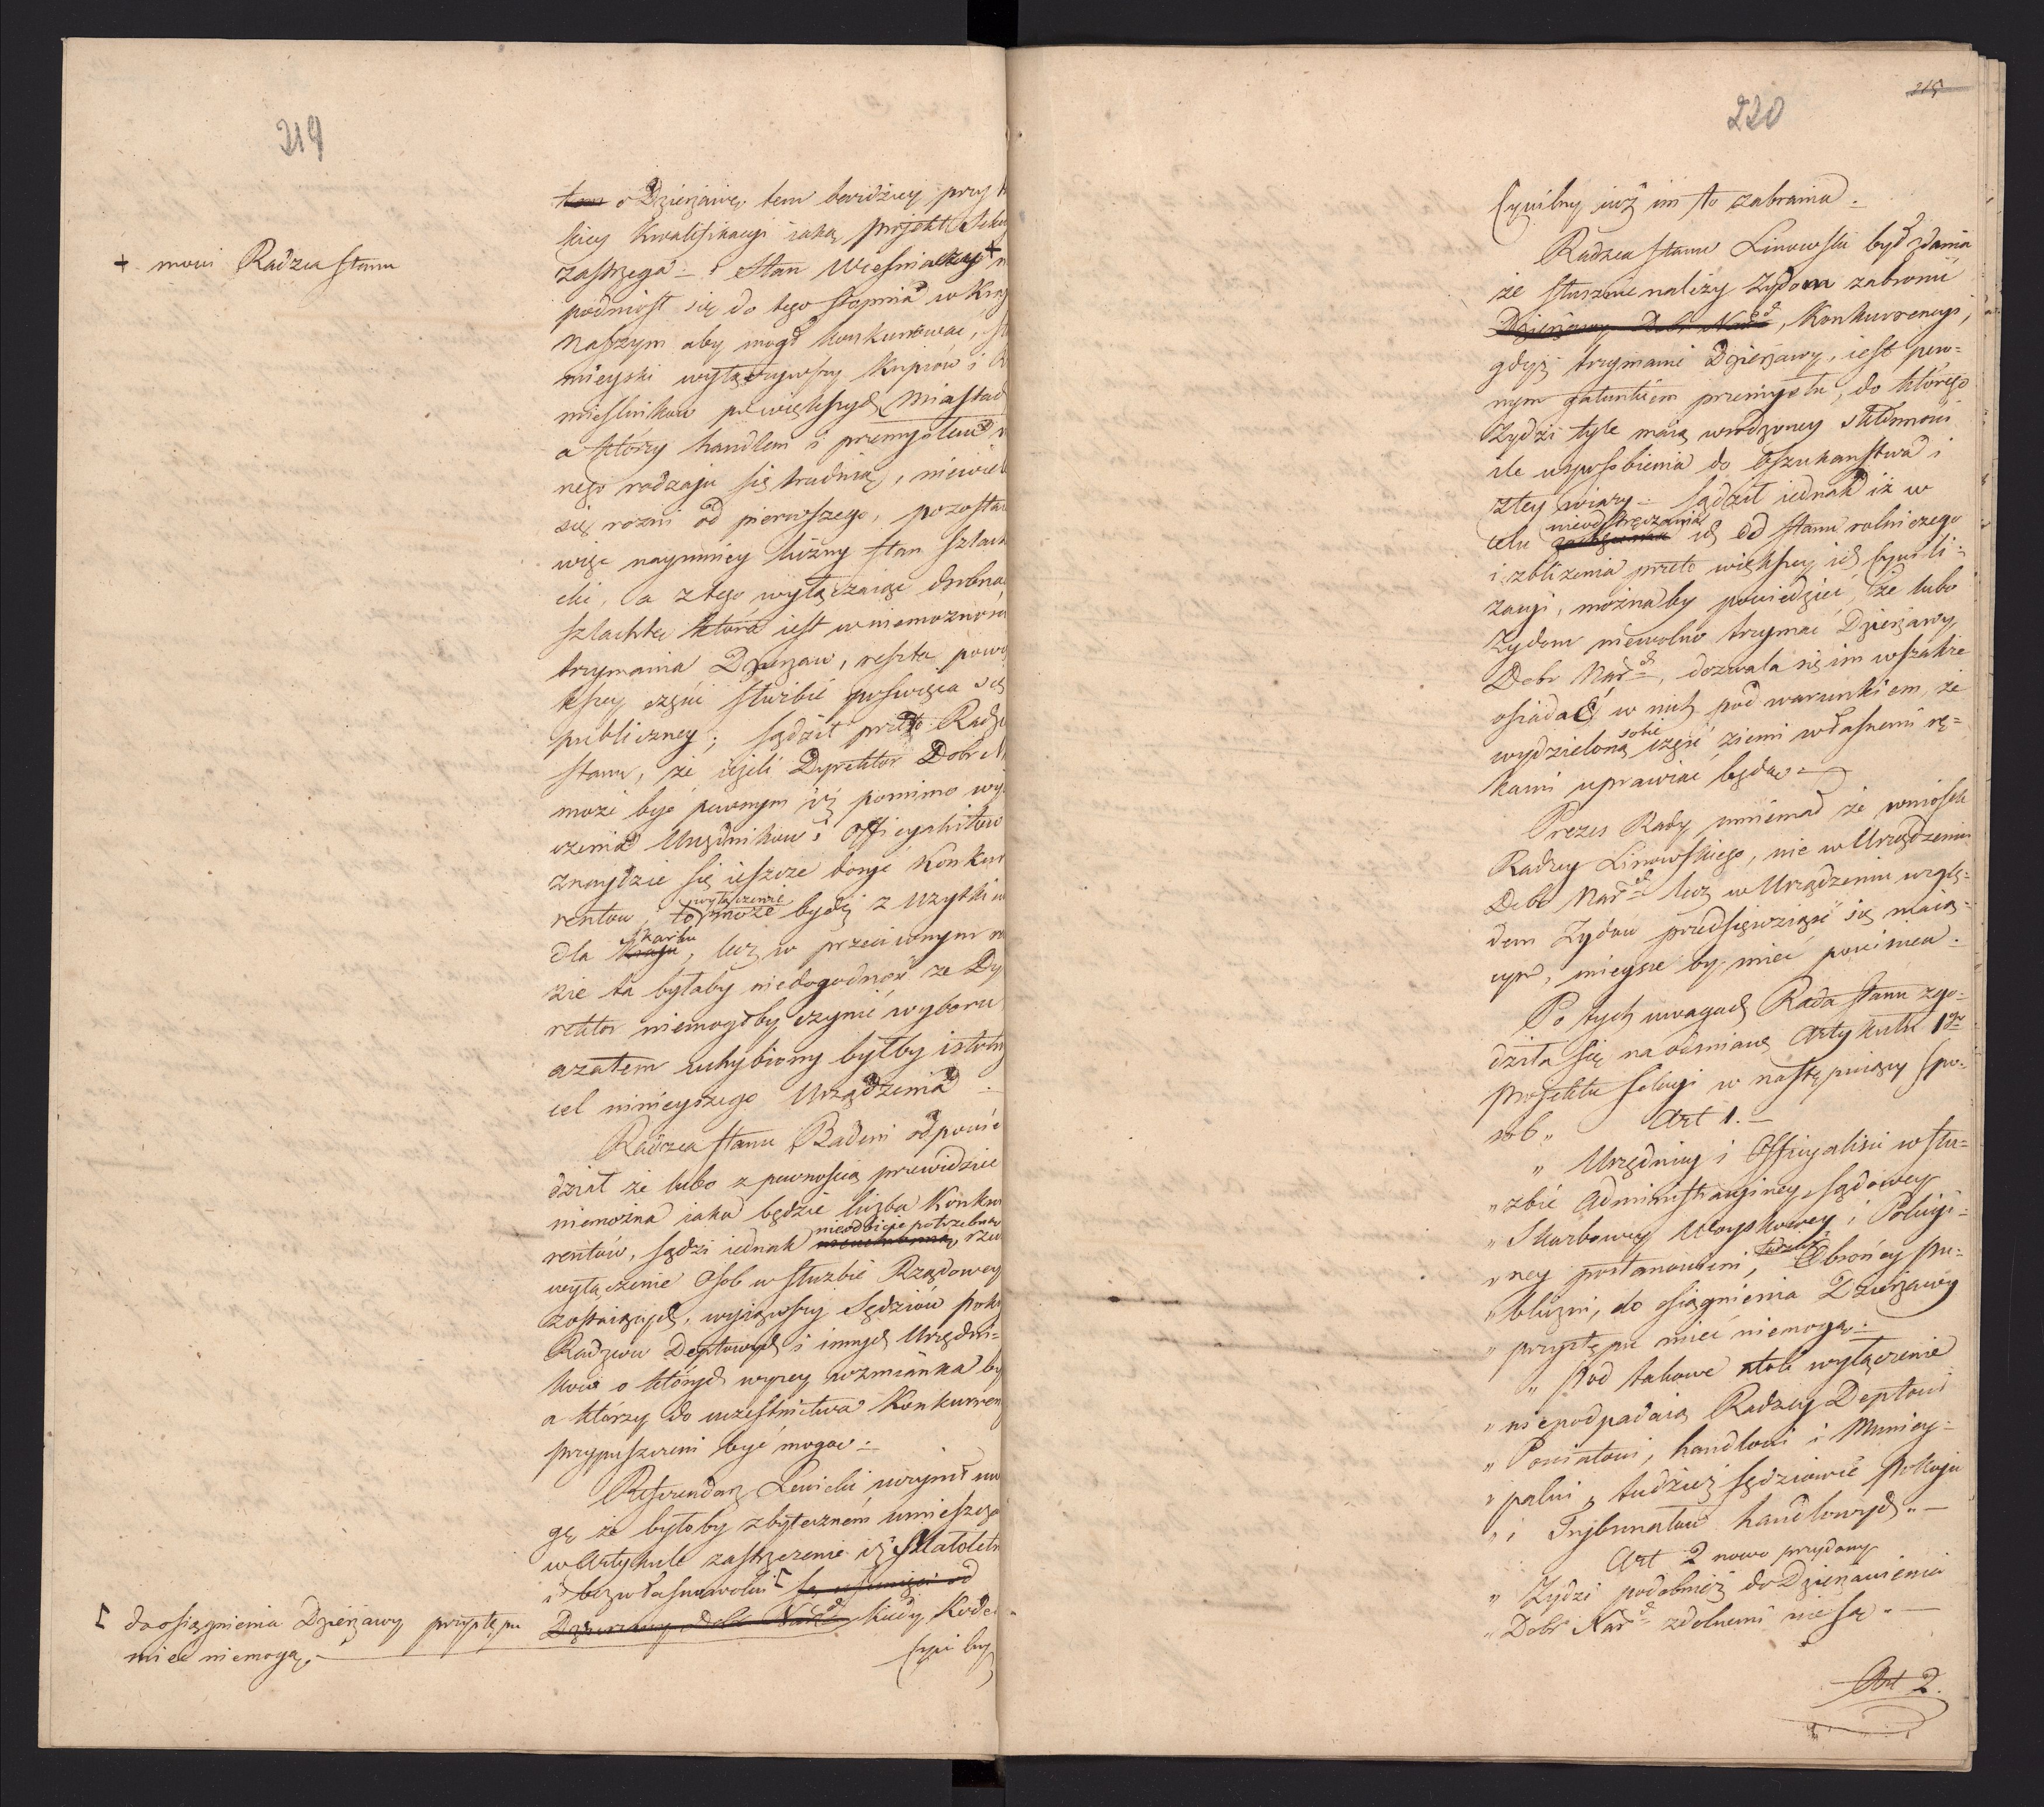 219
+ mowi Radzca Stanu
tem o Dzierżawę, tem bardziey przy
kiey kwalifikacyi iaką projekt
zastrzega.- Stan Wiesniaczy +
podniosł się do tego stopnia w
naszym aby mogł konkurować,
mieyski wyłączywszy kupców i
mieślnikow po większych Miastach
a którzy handlem i przemysłem
nego rodzaju się trudnią,
się rożni od pierwszego,
więc naymniey liczny stan
cki, a z tego wyłączaiąc drobną
szlachtę która iest w niemożności
trzymania Dzierżaw, reszta
kszey części służbie poswięca się
publiczney; sądził przeto
Stanu, że ieżeli Dyrektor Dobr
może być pewnym iż pomimo
czenia Urzędnikow i Officyalistow
znaydzie się ieszcze dosyć
rentow, to wyłączenie może bydź z użytkiem
dla kraju Skarbu, lecz w przeciwnym
zie ta byłaby niedogodność że
rektor niemogłby czynić wyboru
a zatem uchybiony byłby
cel ninieyszego Urządzenia.
Radzca Stanu Badeni odpowie
dział że lubo z pewnością przewidzieć
niemożna iaka będzie liczba
rentów, sądzi iednak nieodbicie potrzebną,
wyłączenie Osob w służbie Rządowey
zostaiących, wyiąwszy Sędziów
Radzcow Deptowych i innych Urzędni=
kow o których wyżey wzmianka
a którzy do uczestnictwa
przypuszczeni być mogą.-
Referendarz Lewicki uczynił
gę że byłoby zbytecznem
w Artykule zastrzeżenie iż Małoletni
i bezwłasnowolni [ są usunięci od
Dzierżawy Dobr Narod: kiedy
Cywilny
[ do osiągnienia Dzierżawy przystępu
mieć niemogą.
215
220
Cywilny iuż im to zabrania.-
Radzca Stanu Linowski był zdania
że słusznie należy Żydom zabronić
Dzierżawy Dobr Narod:, Konkurencyi,
gdyż trzymanie Dzierżawy, iest pew=
nym gatunkiem przemysłu, do którego
Żydzi tyle maią wrodzoney skłonności
ile usposobienia do oszukanstwa i
złey wiary.- Sądził iednak iż w
celu nieodstręczania ich od stanu rolniczego
i zbliżenia przeto większey ich Cywili=
zacyi, możnaby powiedzieć, że lubo
Żydom niewolno trzymać Dzierżawy
Dobr Narod:, dozwala się im wszakże
osiadać w nich pod warunkiem, że
wydzieloną sobie część ziemi własnemi rę=
kami uprawiać będą.
Prezes Rady mniemał że wniosek
Radzcy Linowskiego, nie w Urządzeniu
Dobr Narod: lecz w Urządzeniu wzglę=
dem Żydów przedsięwziąść się maią=
cym, mieysce by mieć powinien.
Po tych uwagach Rada Stanu zgo=
dziła się na odmianę Artykułu 1go
Projektu Sekcyi w następuiący spo=
sob „ Art 1.-
„ Urzędnicy i Officyaliści w słu=
„ żbie Administracyiney, Sądowey
„ Skarbowey Woyskowey i Policyi=
„ ney postanowieni, tudzież Obrońcy pu=
„ bliczni, do osiągnienia Dzierżawy
„ przystępu mieć niemogą.-
„ Pod takowe atoli wyłączenie
„ niepodpadaią Radzcy Deptowi
„ Powiatowi, handlowi i Municy=
„ palni, tudzież Sędziowie Pokoju
„ i Trybunałow handlowych „-
Art 2 nowo przydany
„ Żydzi podobnież do Dzierżawienia
„ Dobr Narod: zdolnemi nie są „-
Art 2.